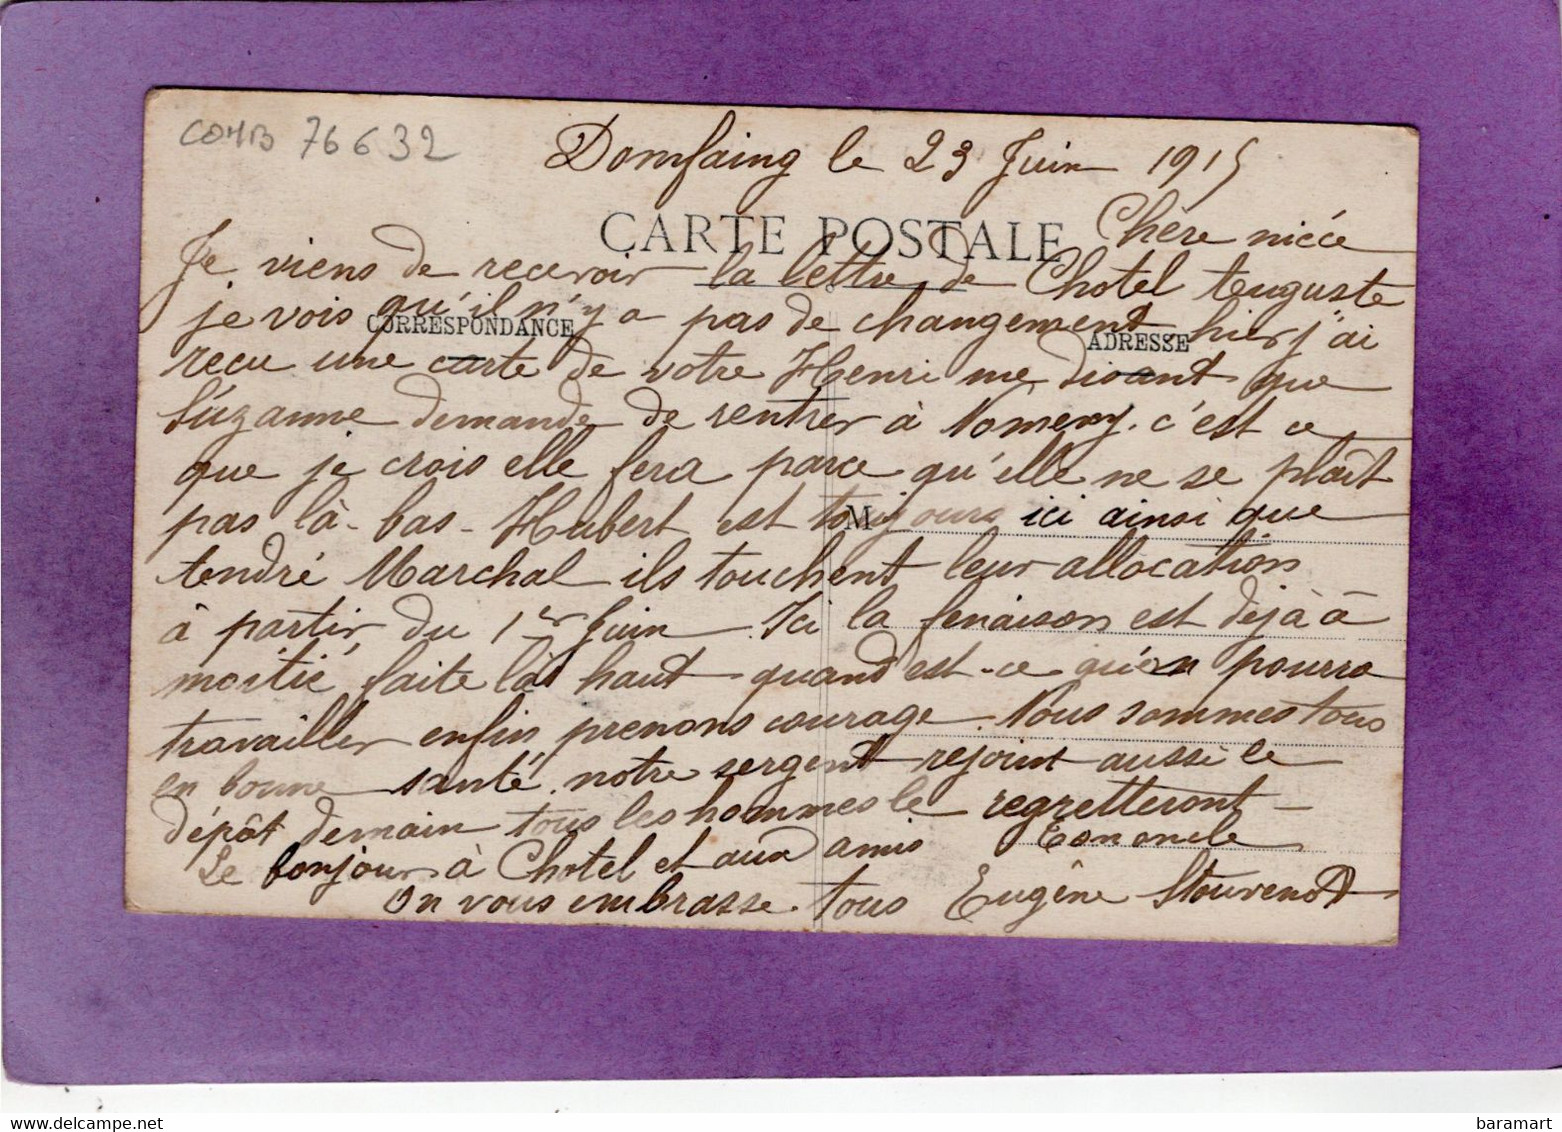 COMB 76632
Domfaing le 23 Juin 1915
CARTE POSTALE
Chère nièce
Je viens de recevoir la lettre de Chotel Auguste
je vois qu'il n'y a pas de changement hier j'ai
CORRESPONDANCE
ADRESSE
reçu une carte de votre Henri me disant que
Suzanne demande de rentrer à Nomeny. c'est ce
que je crois elle fera parce qu'elle ne se plaît
pas là-bas - Hubert est toujours ici ainsi que
M
André Marchal ils touchent leur allocation
à partir du 1er Juin. Ici la fenaison est déjà à
moitié faite là haut quand est-ce qu'on pourra
travailler enfin prenons courage. Nous sommes tous
en bonne santé. notre sergent rejoint aussi le
dépôt demain tous les hommes le regretteront -
Le bonjour à Chotel et aux amis Ton oncle
On vous embrasse. tous Eugène Stouvenot
baramart